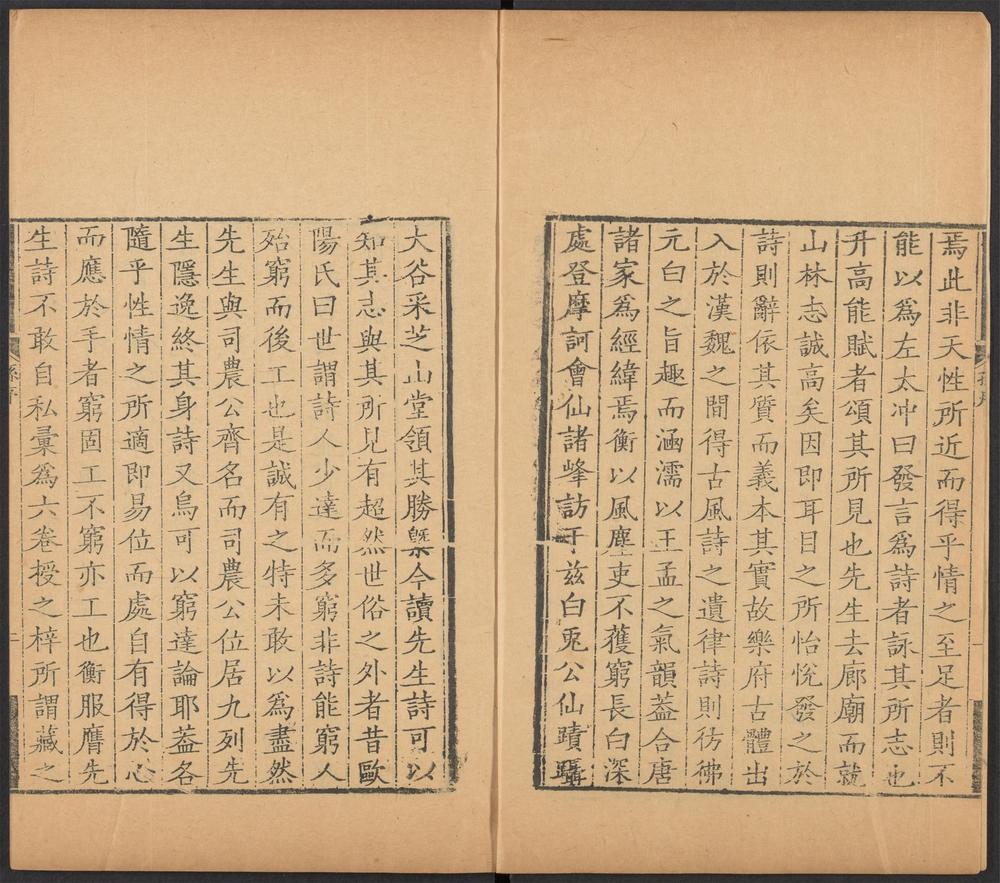 焉此非天性所近而得乎情之至足者則不
能以爲左太冲曰發言爲詩者詠其所志也
升高能賦者頌其所見也先生去廊廟而就
山林志誠高矣因即耳目之所怡悅發之於
詩則辭依其質而義本其實故樂府古體出
入於漢魏之間得古風詩之遺律詩則彷彿
元白之旨趣而涵濡以王孟之氣韻蓋合唐
諸家爲經緯焉衡以風塵吏不獲窮長白深
處登摩訶會仙諸峰訪于兹白兎公仙蹟躡
大谷采芝山堂領其勝槩今讀先生詩可以
知其志與其所見有超然世俗之外者昔歐
陽氏曰世謂詩人少達而多窮非詩能窮人
殆窮而後工也是誠有之特未敢以爲盡然
先生與司農公齊名而司農公位居九列先
生隱逸終其身詩又烏可以窮達論耶葢各
隨乎性情之所適即易位而處自有得於心
而應於手者窮固工不窮亦工也衡服膺先
生詩不敢自私彙爲六卷授之梓所謂藏之